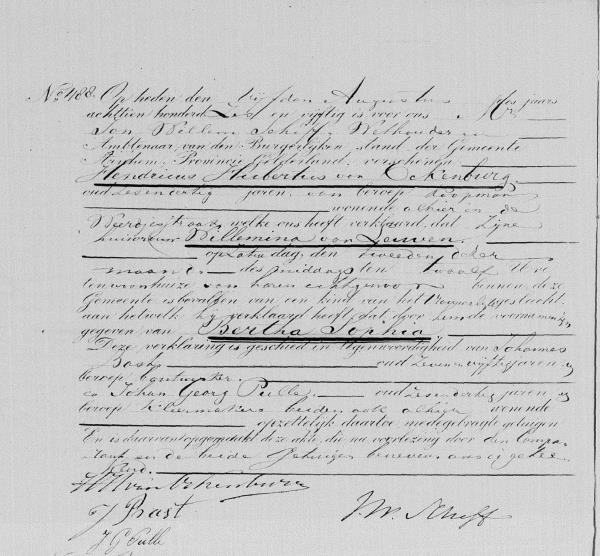 No. 488. Op heden den vijfden Augustus des jaars
achttien honderd zes en vijftig is voor ons Mr.
Jan Willem Schiff, Wethouder
Ambtenaar van den Burgerlijken stand der Gemeente
Arnhem Provincie Gelderland, verschenen
Hendricus Hubertus van Eckenburg,
oud zesendertig jaren, van beroep koopman
wonende alhier in de
Weerdjesstraat, welke ons heeft verklaard, dat zijne
huisvrouw Willemina van Leuven
op Zaturdag, den tweeden dezer
maand des middags ten twaalf ure
ten woonhuize van haren echtgenoot binnen deze
Gemeente is bevallen van een kind van het Vrouwelijk geslacht,
aan hetwelk hij verklaard heeft dat door hem de voornamen zijn
gegeven van Bertha Sophia
Deze verklaring is geschied in tegenwoordigheid van Johannes
Bast oud zevenenvijftig jaren,
beroep
en Johan Georg Pulle oud zesendertig jaren,
beroep kleermaker beiden ook alhier wonende
opzettelijk daartoe medegebragte getuigen
En is daarvan opgemaakt deze akte, die na voorlezing door den Compa-
rant en de beide getuigen benevens ons is getee-
kend.
HH van Eckenburg
J Bast
J. W. Schiff
J G Pulle